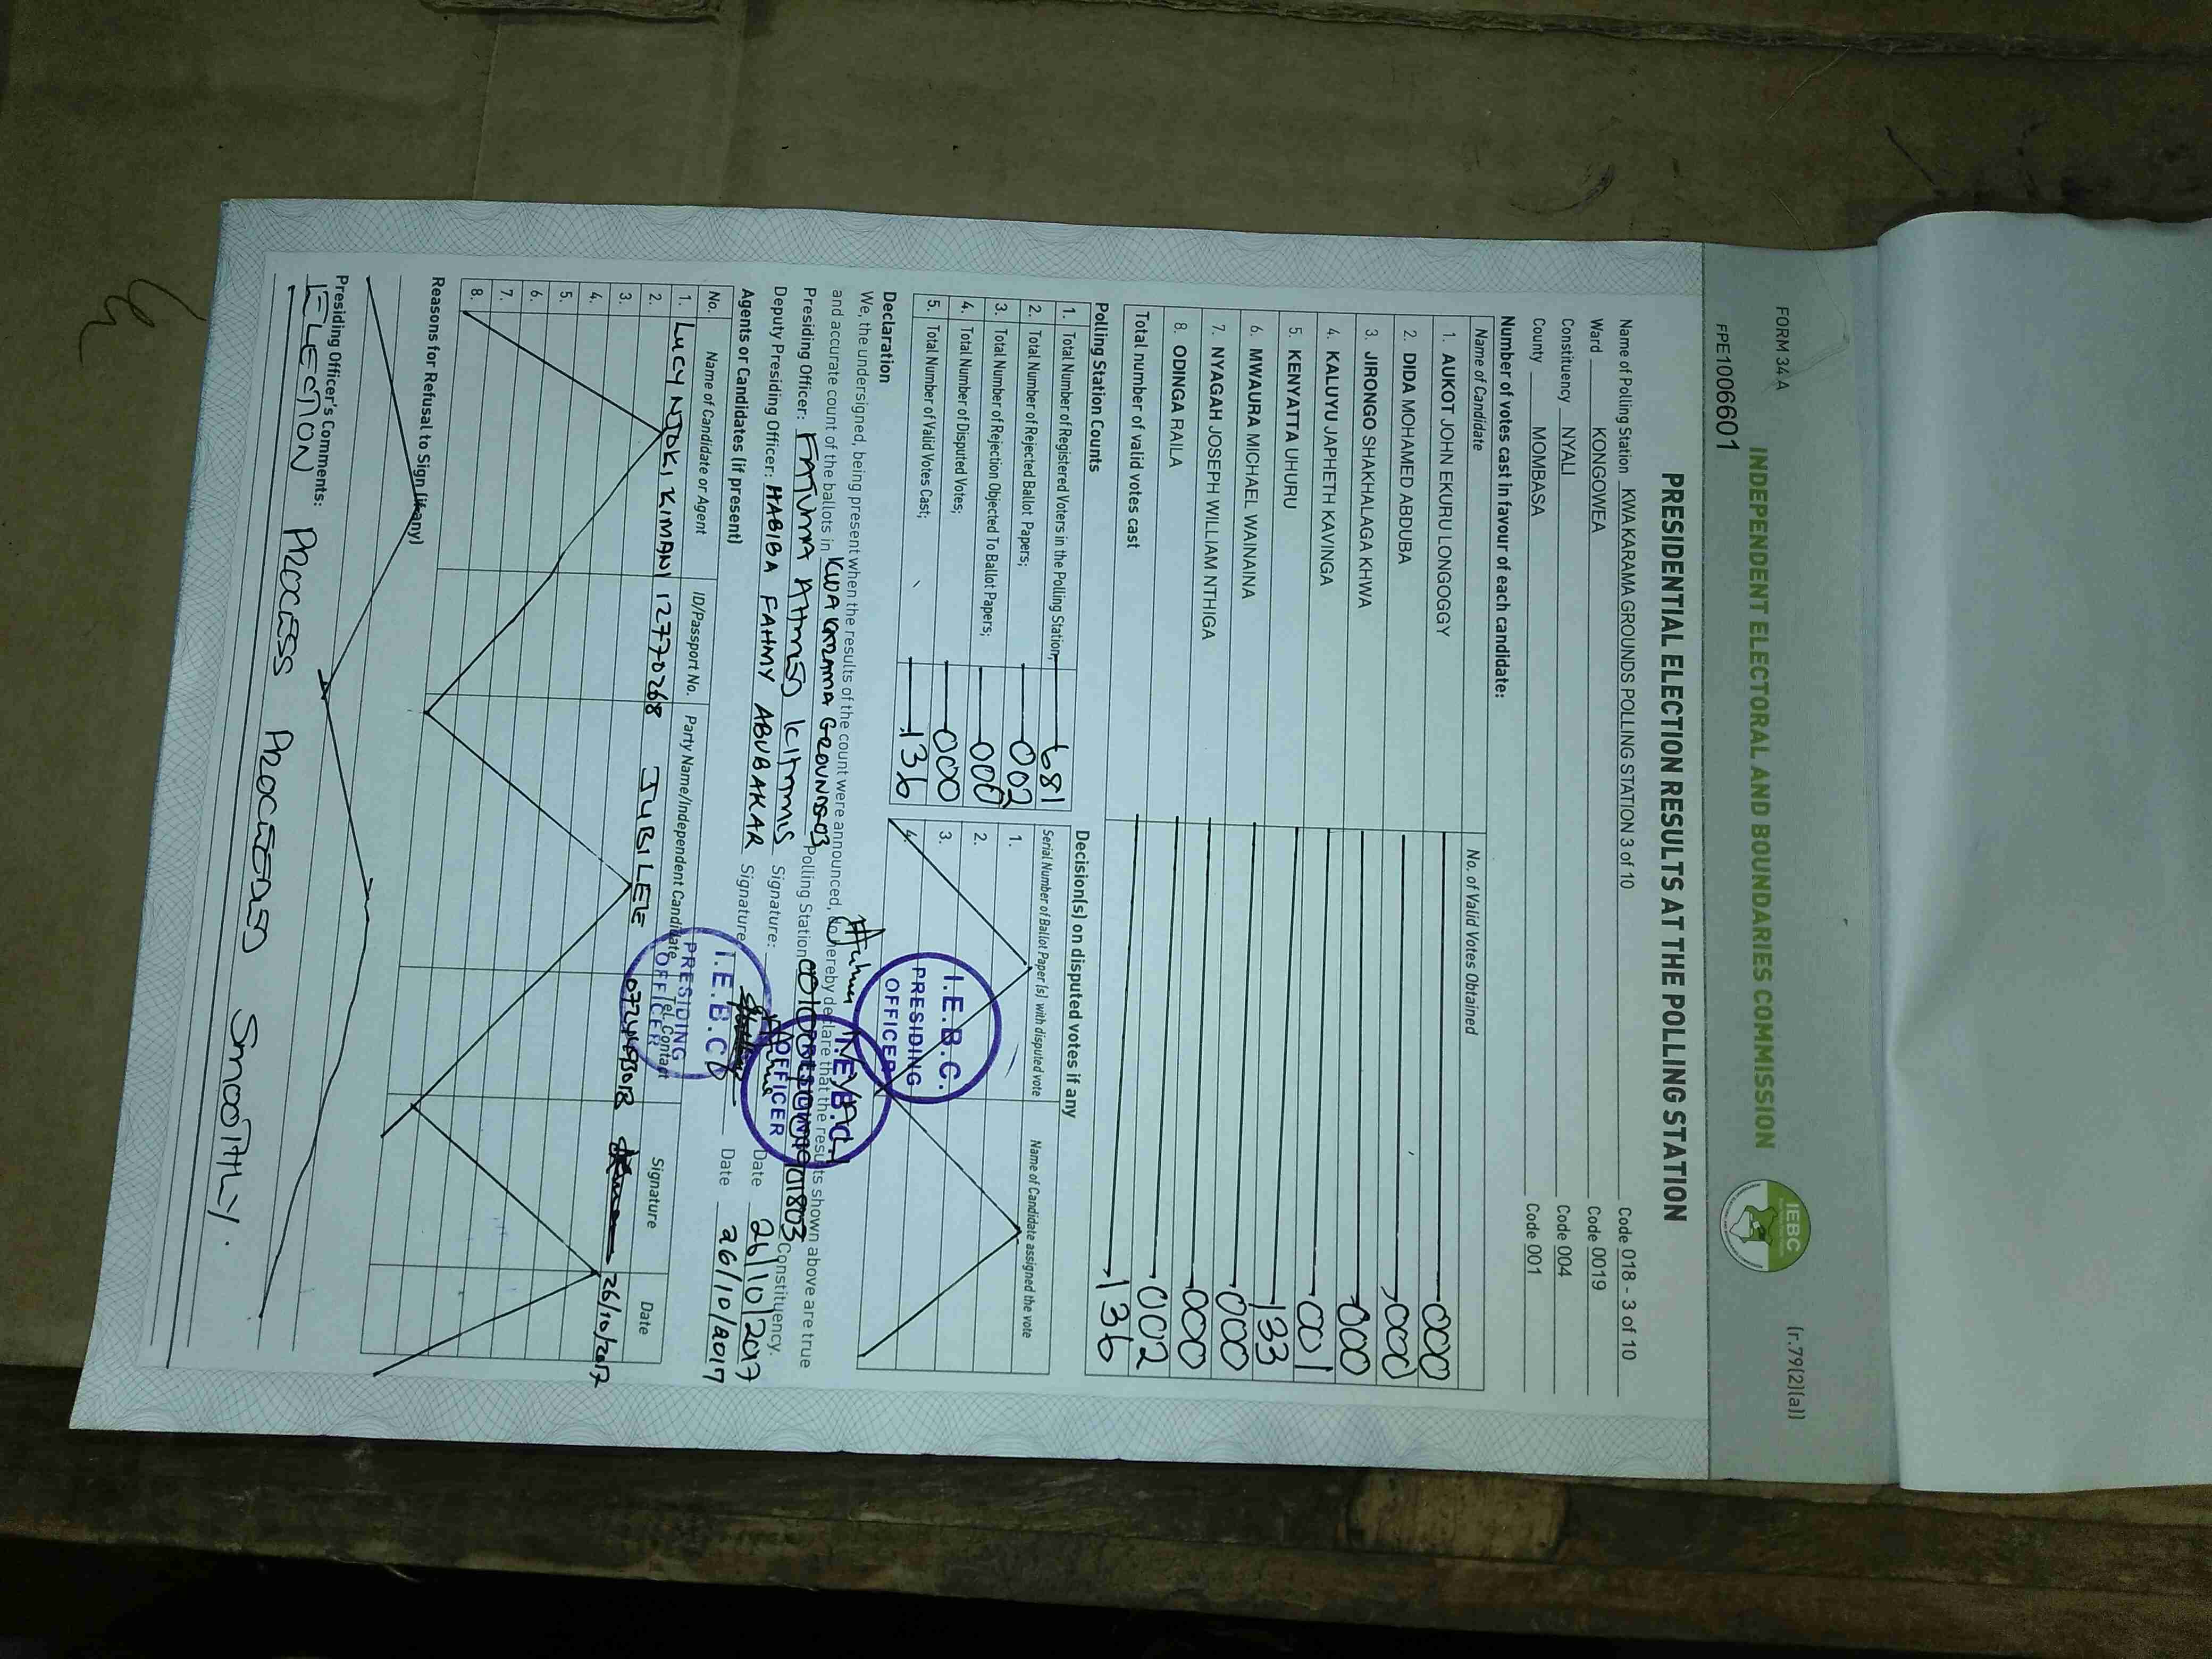 FORM 34 A
(r.79(2)(a))
INDEPENDENT ELECTORAL AND BOUNDARIES COMMISSION
IEBC
FPE1006601
PRESIDENTIAL ELECTION RESULTS AT THE POLLING STATION
Name of Polling Station KWA KARAMA GROUNDS POLLING STATION 3 of 10 Code 018 - 3 of 10
Ward KONGOWEA Code 0019
Constituency NYALI Code 004
County MOMBASA Code 001
Number of votes cast in favour of each candidate:
Name of Candidate No. of Valid Votes Obtained
1. AUKOT JOHN EKURU LONGOGGY 000
2. DIDA MOHAMED ABDUBA 000
3. JIRONGO SHAKHALAGA KHWA 000
4. KALUYU JAPHETH KAVINGA 001
5. KENYATTA UHURU 133
6. MWAURA MICHAEL WAINAINA 000
7. NYAGAH JOSEPH WILLIAM NTHIGA 000
8. ODINGA RAILA 002
Total number of valid votes cast 136
Polling Station Counts
1. Total Number of Registered Voters in the Polling Station; 681
2. Total Number of Rejected Ballot Papers; 002
3. Total Number of Rejection Objected To Ballot Papers; 000
4. Total Number of Disputed Votes; 000
5. Total Number of Valid Votes Cast; 136
Decision(s) on disputed votes if any
Serial Number of Ballot Paper (s) with disputed vote Name of Candidate assigned the vote
1.
2.
3.
4.
I.E.B.C.
PRESIDING
OFFICER
Declaration
We, the undersigned, being present when the results of the count were announced, do hereby declare that the results shown above are true
and accurate count of the ballots in KWA KARAMA GROUNDS 03 Polling Station Constituency.
Presiding Officer: FATUMA AHMED Signature: Date 26/10/2017
Deputy Presiding Officer: HABIBA FAHMY ABUBAKAR Signature Date 26/10/2017
I.E.B.C.
OFFICER
Agents or Candidates (if present)
I.E.B.C
PRESIDING
OFFICER
No. Name of Candidate or Agent ID/Passport No. Party Name/Independent Candidate Tel. Contact Signature Date
1. LUCY NJOKI KIMANI 12770268 JUBILEE 26/10/2017
2.
3.
4.
5.
6.
7.
8.
Reasons for Refusal to Sign (if any)
Presiding Officer's Comments:
ELECTION PROCESS PROCEEDED SMOOTHLY.